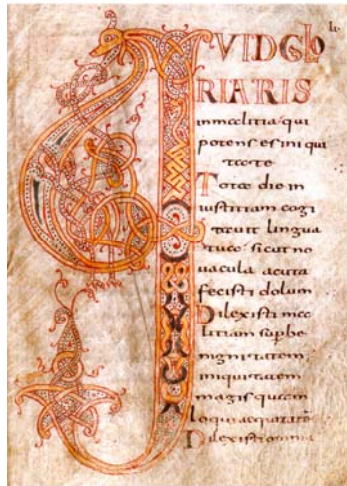 QVIDGLO
RIARIS
inmalitia qui
potens es ini qui
tate
Tota die in
iustitiam cogi
tauit lingua
tua· sicut no
uacula acuta
fecisti dolum
Dilexisti ma
litiam sup be
nignitatem
iniquitatem
magis quam
loqui aequitatē
Dilexisti omnia